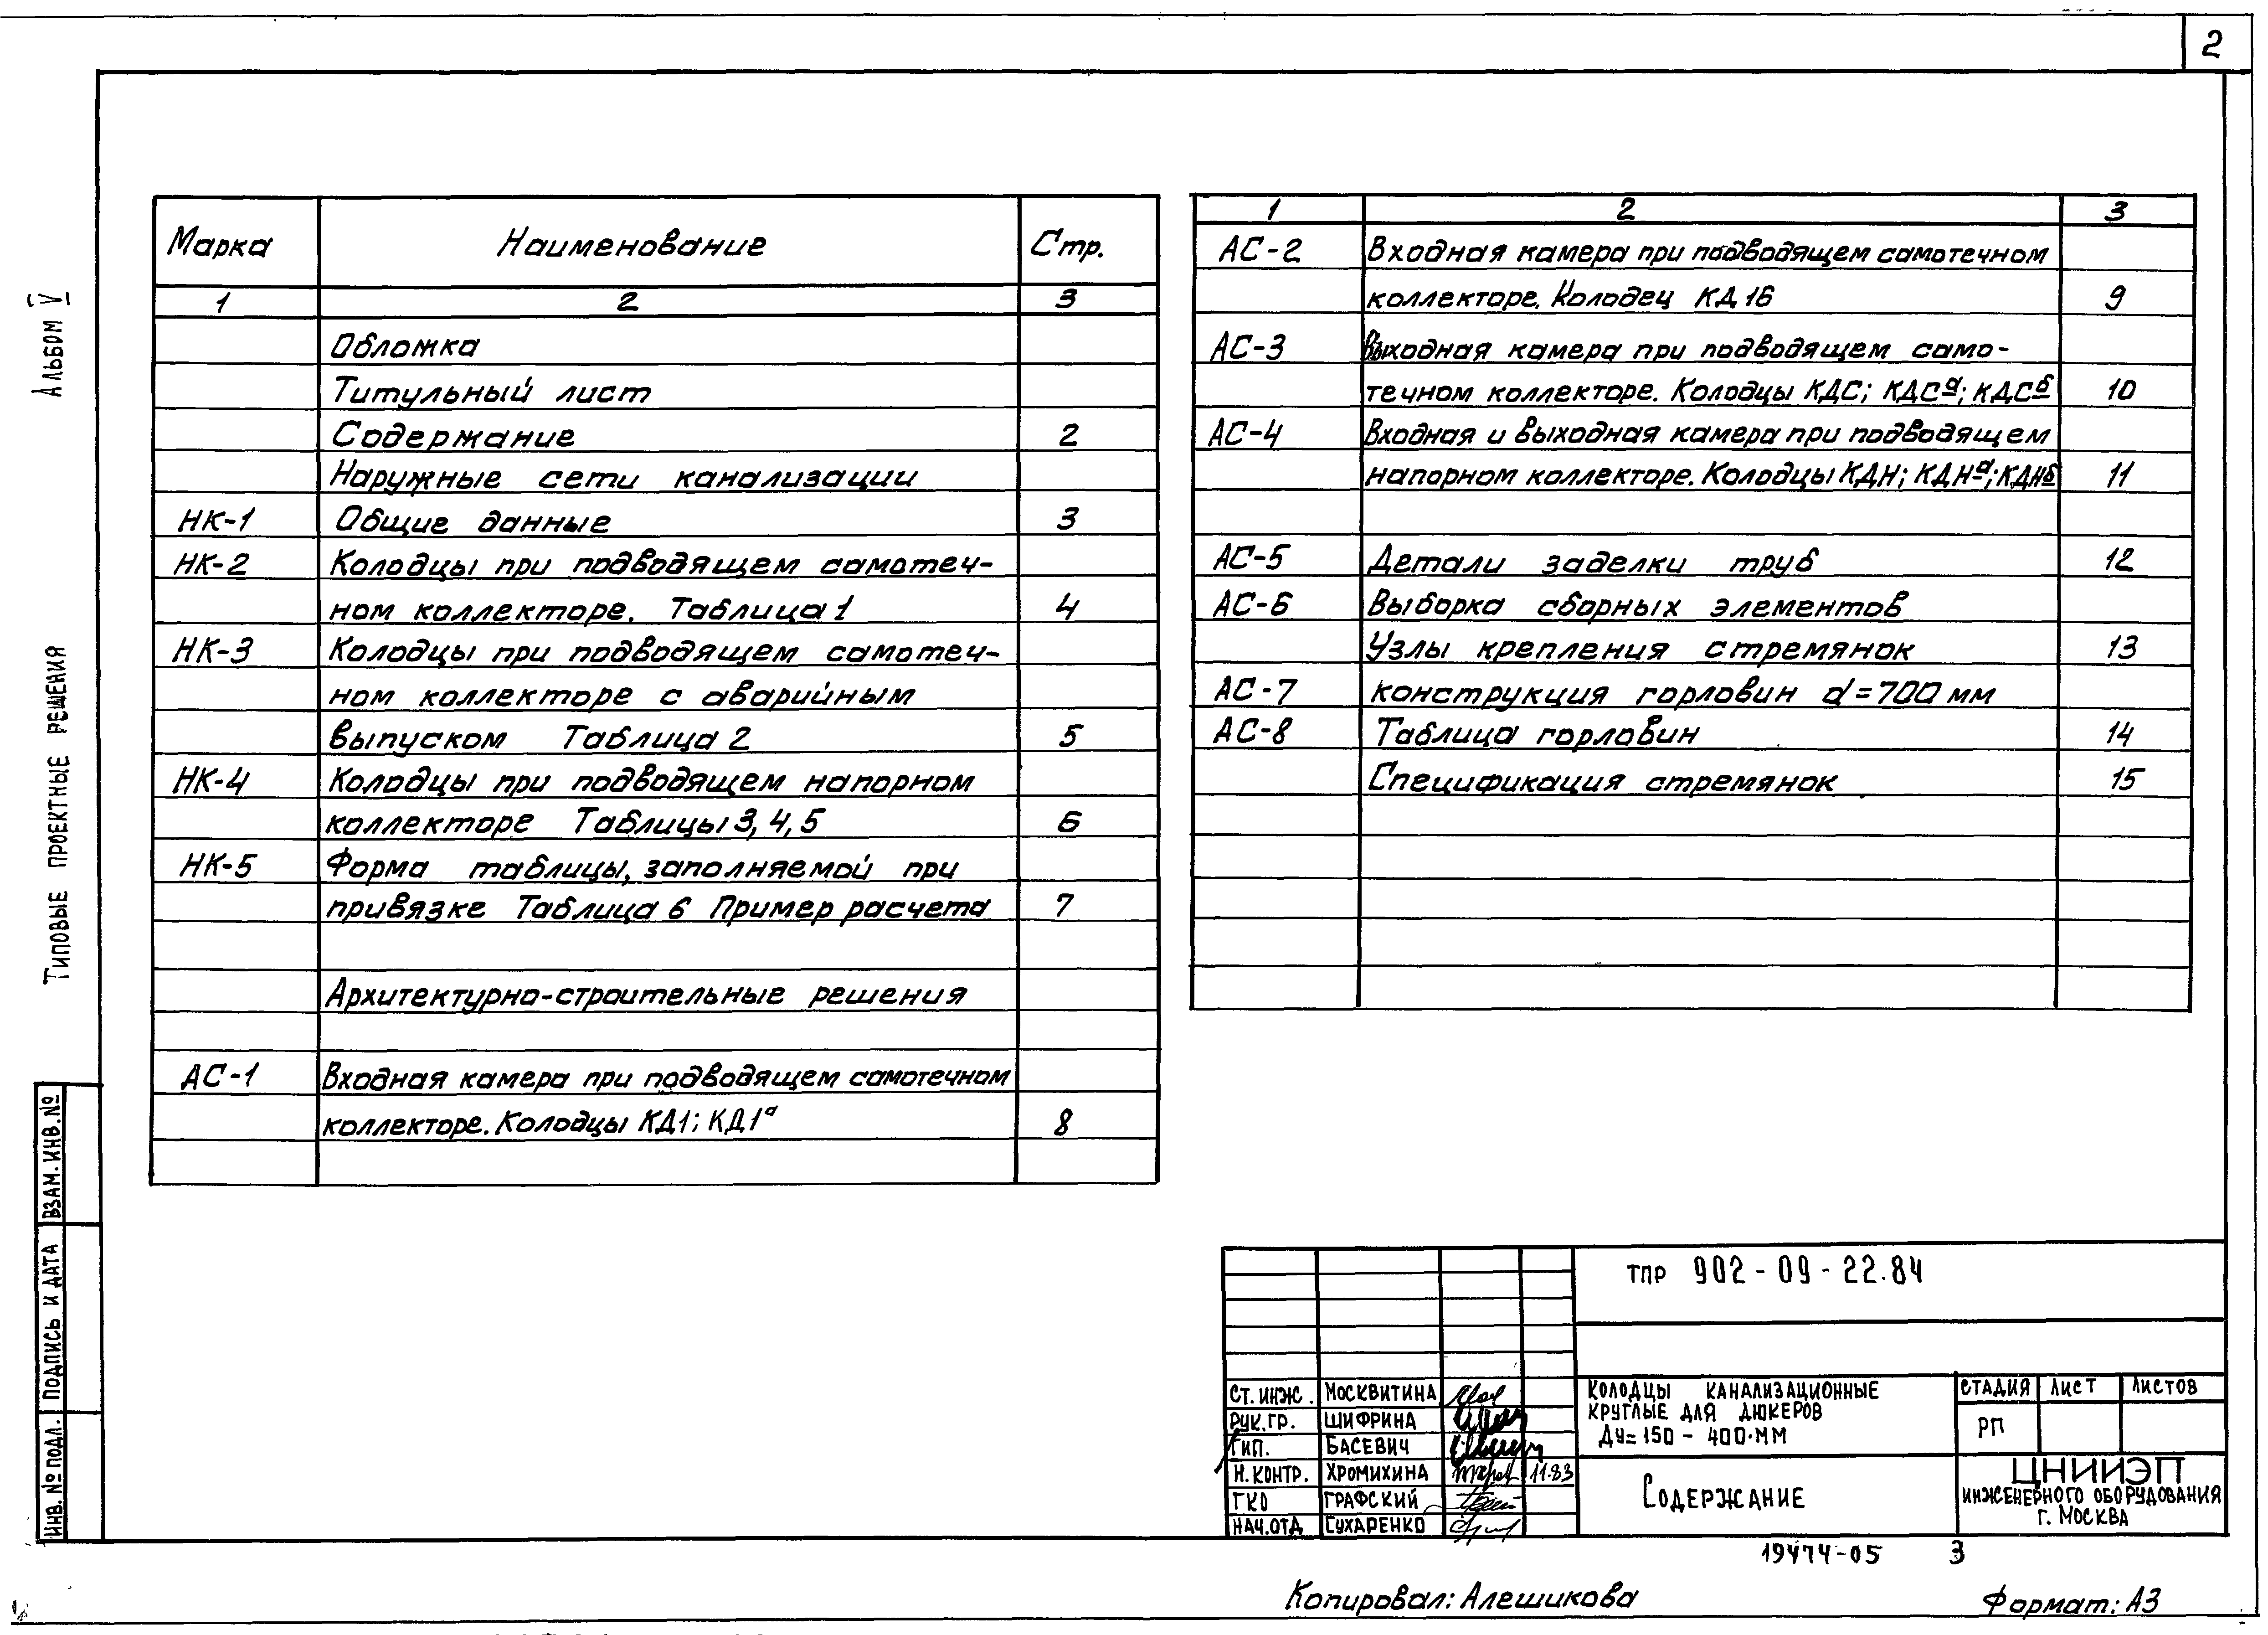 2
Альбом V
Типовые проектные решения
Марка Наименование Стр.
1 2 3
Обложка
Титульный лист
Содержание 2
Наружные сети канализации
НК-1 Общие данные 3
НК-2 Колодцы при подводящем самотеч-
ном коллекторе. Таблица 1 4
НК-3 Колодцы при подводящем самотеч-
ном коллекторе с аварийным
выпуском Таблица 2 5
НК-4 Колодцы при подводящем напорном
коллекторе Таблицы 3, 4, 5 6
НК-5 Форма таблицы, заполняемой при
привязке Таблица 6 Пример расчета 7
Архитектурно-строительные решения
АС-1 Входная камера при подводящем самотечном
коллекторе. Колодцы КД1; КД1а 8
1 2 3
АС-2 Входная камера при подводящем самотечном
коллекторе. Колодец КД1б 9
АС-3 Выходная камера при подводящем само-
течном коллекторе. Колодцы КДС; КДСа; КДСб 10
АС-4 Входная и выходная камера при подводящем
напорном коллекторе. Колодцы КДН; КДНа; КДНб 11
АС-5 Детали заделки труб 12
АС-6 Выборка сборных элементов
Узлы крепления стремянок 13
АС-7 конструкция горловин d=700 мм
АС-8 Таблица горловин 14
Спецификация стремянок 15
Взам. инв. №
Подпись и дата
Инв. № подл.
ТПР 902-09-22.84
Ст. инж. Москвитина
Рук. гр. Шифрина
Гип. Басевич
Н. контр. Хромихина 11.83
ГКО Графский
Нач. отд Сухаренко
Колодцы канализационные
круглые для дюкеров
Ду=150-400 мм
Стадия Лист Листов
РП
Содержание
ЦНИИЭП
инженерного оборудования
г. Москва
19474-05 3
Копировал: Алешикова
Формат: А3